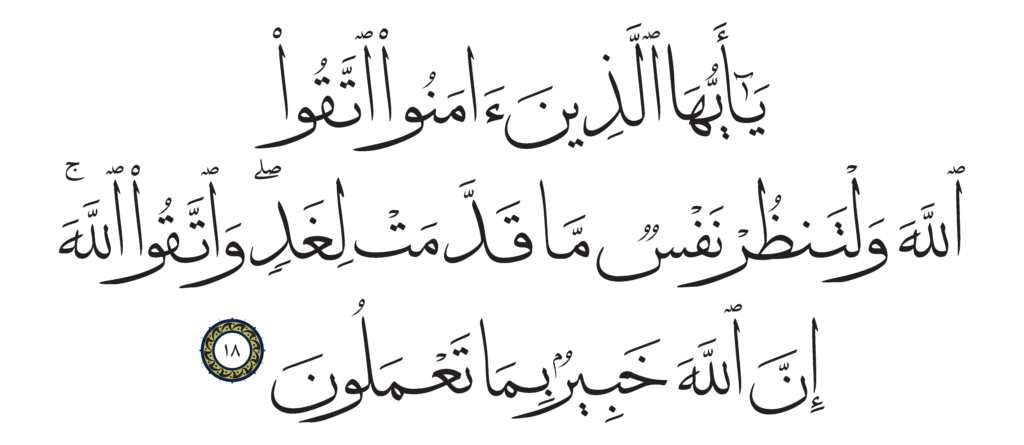 يَٰٓأَيُّهَا ٱلَّذِينَ ءَامَنُوا۟ ٱتَّقُوا۟
ٱللَّهَ وَلْتَنظُرْ نَفْسٌۭ مَّا قَدَّمَتْ لِغَدٍۢ ۖ وَٱتَّقُوا۟ ٱللَّهَ ۚ
إِنَّ ٱللَّهَ خَبِيرٌۢ بِمَا تَعْمَلُونَ ١٨